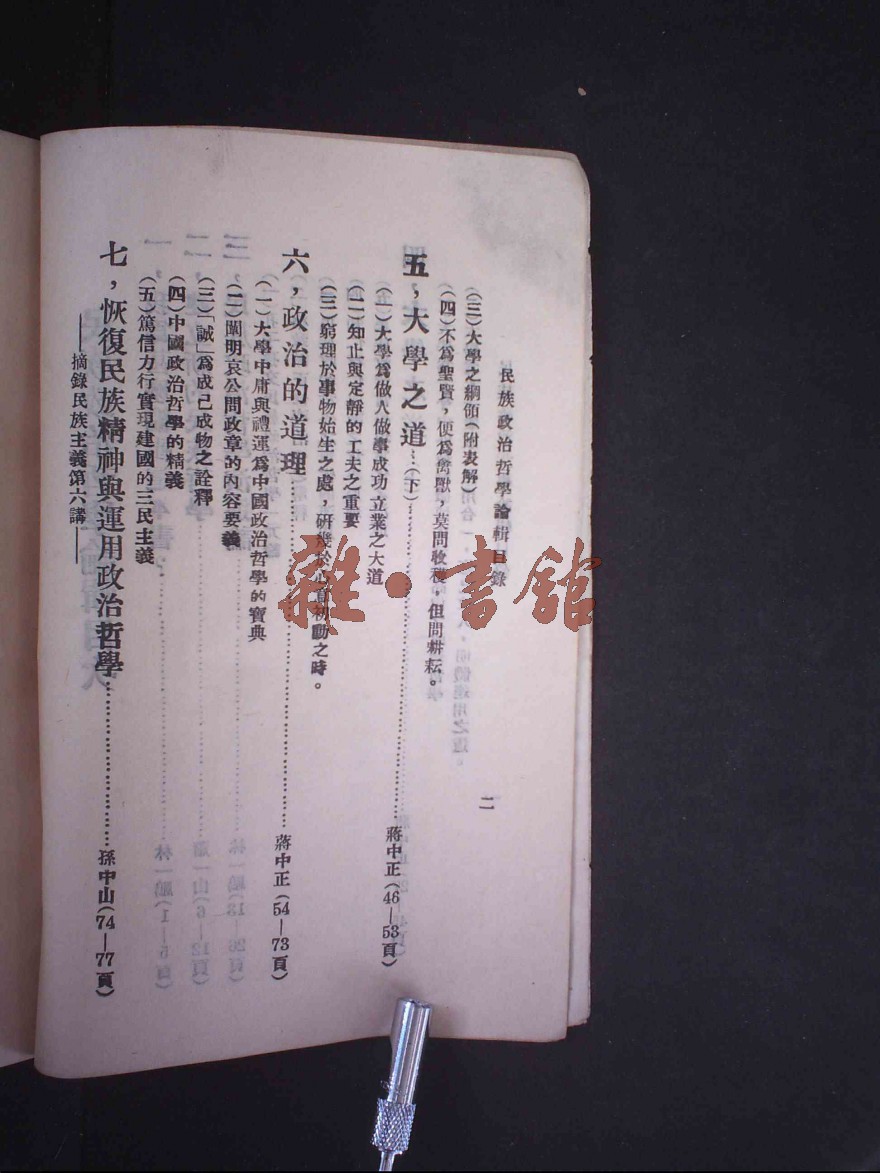 民族政治哲學論輯目錄
二
(三)大學之綱領(附表解)
(四)不為聖賢，便為禽獸，莫問收穫，但問耕耘。
五，大學之道…(下)……蔣中正(46—53頁)
(一)大學為做人做事成功立業之大道
(二)知止與定靜的工夫之重要
(三)窮理於事物始生之處，研幾於心意初動之時。
六，政治的道理……蔣中正(54—73頁)
(一)大學中庸與禮運為中國政治哲學的寶典
(二)闡明哀公問政章的內容要義
(三)「誠」為成己成物之詮釋
(四)中國政治哲學的精義
(五)篤信力行實現建國的三民主義
七，恢復民族精神與運用政治哲學……孫中山(74—77頁)
——摘錄民族主義第六講——
雜·書館